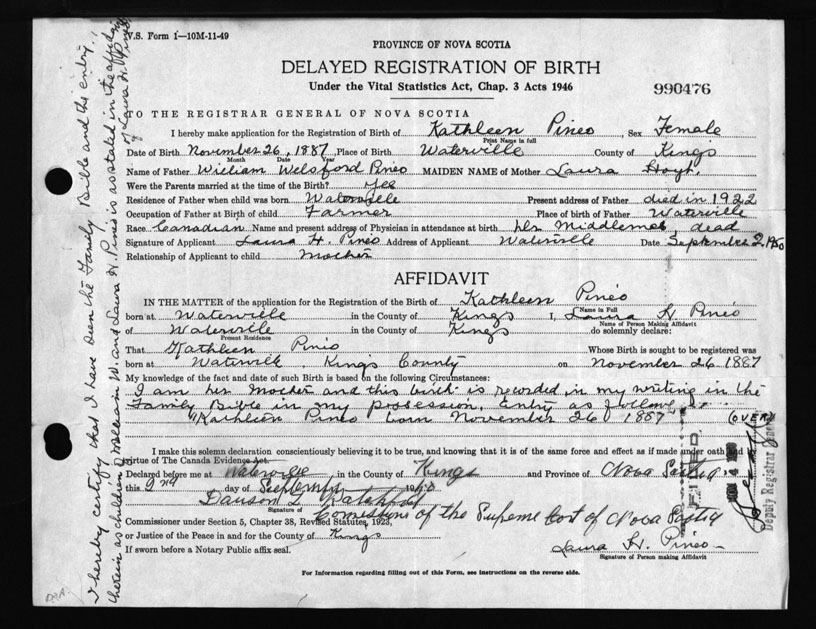 V.S. Form 1—10M-11-49
PROVINCE OF NOVA SCOTIA
DELAYED REGISTRATION OF BIRTH
Under the Vital Statistics Act, Chap. 3 Acts 1946
990476
TO THE REGISTRAR GENERAL OF NOVA SCOTIA
I hereby make application for the Registration of Birth of Kathleen Pineo, Sex Female
Print Name in full
Date of Birth November 26, 1887 Place of Birth Waterville County of Kings
Month Date Year
Name of Father William Welsford Pineo MAIDEN NAME of Mother Laura Hoyt,
Were the Parents married at the time of the Birth? Yes
Residence of Father when child was born Waterville Present address of Father died in 1922
Occupation of Father at Birth of child Farmer Place of birth of Father Waterville
Race Canadian Name and present address of Physician in attendance at birth dead
Signature of Applicant Laura H. Pineo Address of Applicant Waterville Date September 2, 1950
Relationship of Applicant to child Mother
AFFIDAVIT
IN THE MATTER of the application for the Registration of the Birth of Kathleen Pineo
Name in Full
born at Waterville in the County of Kings I, Laura H. Pineo
Name of Person Making Affidavit
of Waterville in the County of Kings do solemnly declare:
Present Residence
That Kathleen Pineo Whose Birth is sought to be registered was
born at Waterville, Kings County on November 26 1887
My knowledge of the fact and date of such Birth is based on the following Circumstances:
I am her Mother and this birth is recorded in my writing in the
Family Bible in my possession, Entry as follows :-
"Kathleen Pineo born November 26 1887" (OVER)
I make this solemn declaration conscientiously believing it to be true, and knowing that it is of the same force and effect as if made under oath and
virtue of The Canada Evidence Act.
Declared before me at Waterville in the County of Kings and Province of Nova Scotia
this 2nd day of September 1950
Signature of
of the Supreme Court of Nova Scotia
Commissioner under Section 5, Chapter 38, Revised Statutes, 1923,
or Justice of the Peace in and for the County of Kings
If sworn before a Notary Public affix seal.
Laura H. Pineo
Signature of Person making Affidavit
For Information regarding filling out of this Form, see instructions on the reverse side.
I hereby certify that I have seen the Family Bible and the entry
therein as children of William W. and Laura H. Pineo is as stated in the affidavit
of Laura H. Pineo
FILED
Deputy Registrar General